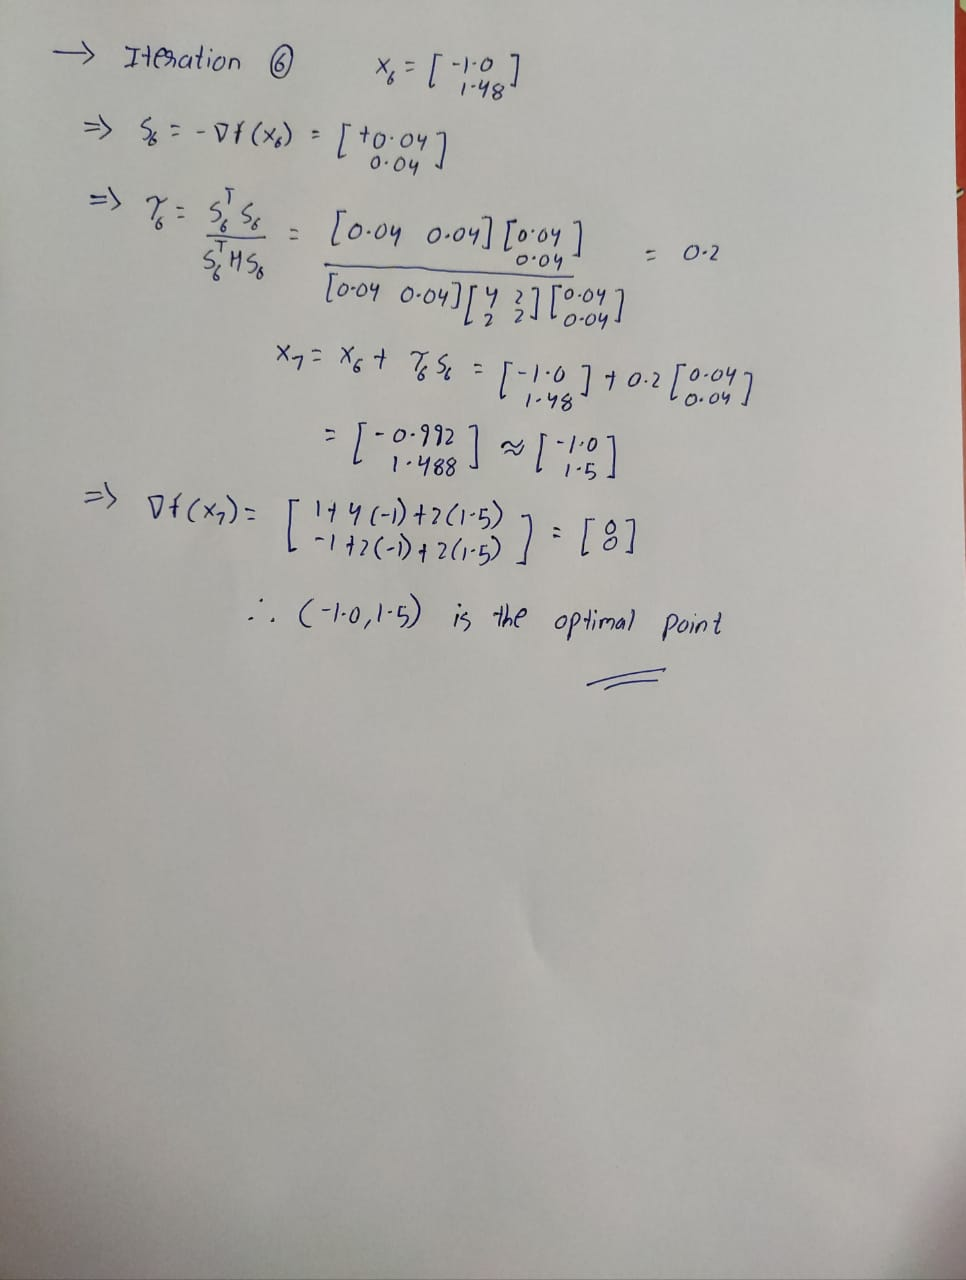 → Iteration ⑥ X₆ = [-1.0 1.48]
⇒ S₆ = - ∇f(X₆) = [+0.04 0.04]
⇒ τ₆ = S₆ᵀ S₆ / S₆ᵀ H S₆ = [0.04 0.04] [0.04 0.04] / [0.04 0.04] [4 2 2 2] [0.04 0.04] = 0.2
X₇ = X₆ + τ₆ S₆ = [-1.0 1.48] + 0.2 [0.04 0.04]
= [-0.992 1.488] ≈ [-1.0 1.5]
⇒ ∇f(X₇) = [1+4(-1)+2(1.5) -1+2(-1)+2(1.5)] = [0 0]
∴ (-1.0,1.5) is the optimal point